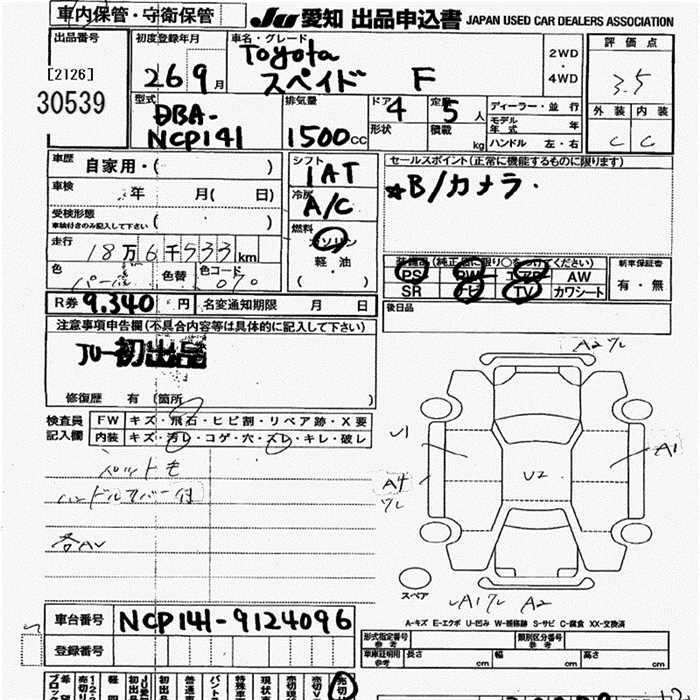 車内保管・守衛保管
JU 愛知 出品申込書 JAPAN USED CAR DEALERS ASSOCIATION
出品番号
[2126]
30539
初度登録年月
26 9 月
車名・グレード
Toyota
スペイド F
2WD
・
4WD
評価点
3.5
外装 内装
C C
型式
DBA-
NCP141
排気量
1500cc
ドア 4
形状
定員 5 人
積載 kg
ディーラー・並行
モデル年式 年
ハンドル 左・右
車歴
自家用・( )
車検
年 月( 日)
受検形態
車検付きのみ記入して下さい ( )
走行
18万6千533km
色
色替 色コード
070
シフト
1AT
冷房
A/C
燃料
ガソリン
軽・油
( )
セールスポイント(正常に機能するものに限ります)
★B/カメラ.
装備品(純正品に限り○をつけてください)
PS PW エアB AW
SR ナビ TV カワシート
新車保証書
有・無
後日品
R券 9,340 円 名変通知期限 月 日
注意事項申告欄(不具合内容等は具体的に記入して下さい)
JU-初出品
修復歴 有 (箇所 )
検査員
記入欄
FW キズ・飛石・ヒビ割・リペア跡・X要
内装 キズ・汚レ・コゲ・穴・スレ・キレ・破レ
ハンドルカバー付
各AU
A2ワレ
U1
A1
A4
ワレ
U2
スペア
A1ワレ A2
A-キズ E-エクボ U-凹み W-補修跡 S-サビ C-腐食 XX-交換済
車台番号 NCP141-9124096
登録番号
形式指定番号
参考
類別区分番号
参考
車庫証明用
参考
長さ cm 幅 cm 高さ cm